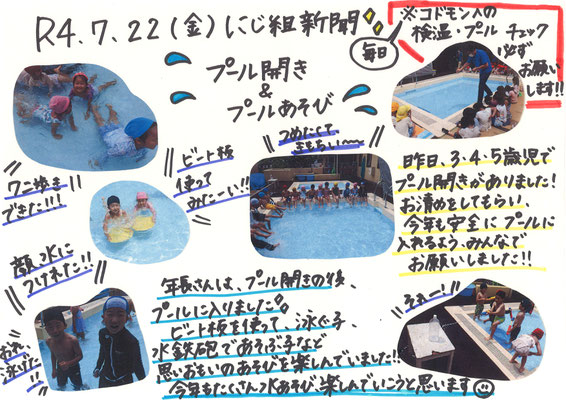 R4.7.22(金)にじ組新聞
毎日
※コドモンへの
検温・プールチェック
必ず
お願い
します!!
プール開き
&
プールあそび
つめたくて
きもちい〜
ビート板
使って
みたーい!!
ワニ歩き
できた!!!
昨日、3・4・5歳児で
プール開きがありました!
お清めをしてもらい、
今年も安全にプールに
入れるよう、みんなで
お願いしました!!
顔、水に
つけれた!!
年長さんは、プール開きの後、
プールに入りました。
ビート板を使って、泳ぐ子、
水鉄砲であそぶ子など
思いおもいのあそびを楽しんでいました!!
今年もたくさん水あそび、楽しんでいこうと思います
おれ、
泳げた!!